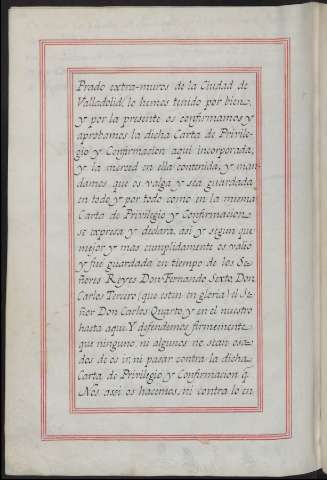 Prado extra-muros de la Ciudad de
Valladolid, lo hemos tenido por bien,
y por la presente os confirmamos y
aprobamos la dicha Carta de Privile-
gio y Confirmacion aqui incorporada,
y la merced en ella contenida, y man-
damos que os valga y sea guardada
en todo y por todo como en la misma
Carta de Privilegio y Confirmacion
se expresa y declara, asi y segun que
mejor y mas cumplidamente os valio
y fue guardada en tiempo de los Se-
ñores Reyes Don Fernando Sexto, Don
Carlos Tercero (que esten en gloria) el Se-
ñor Don Carlos Quarto y en el nuestro
hasta aqui. Y defendemos firmemente
que ninguno, ni algunos no sean osa-
dos de os ir, ni pasar contra la dicha
Carta de Privilegio y Confirmacion q.
Nos assi os hacemos, ni contra lo en